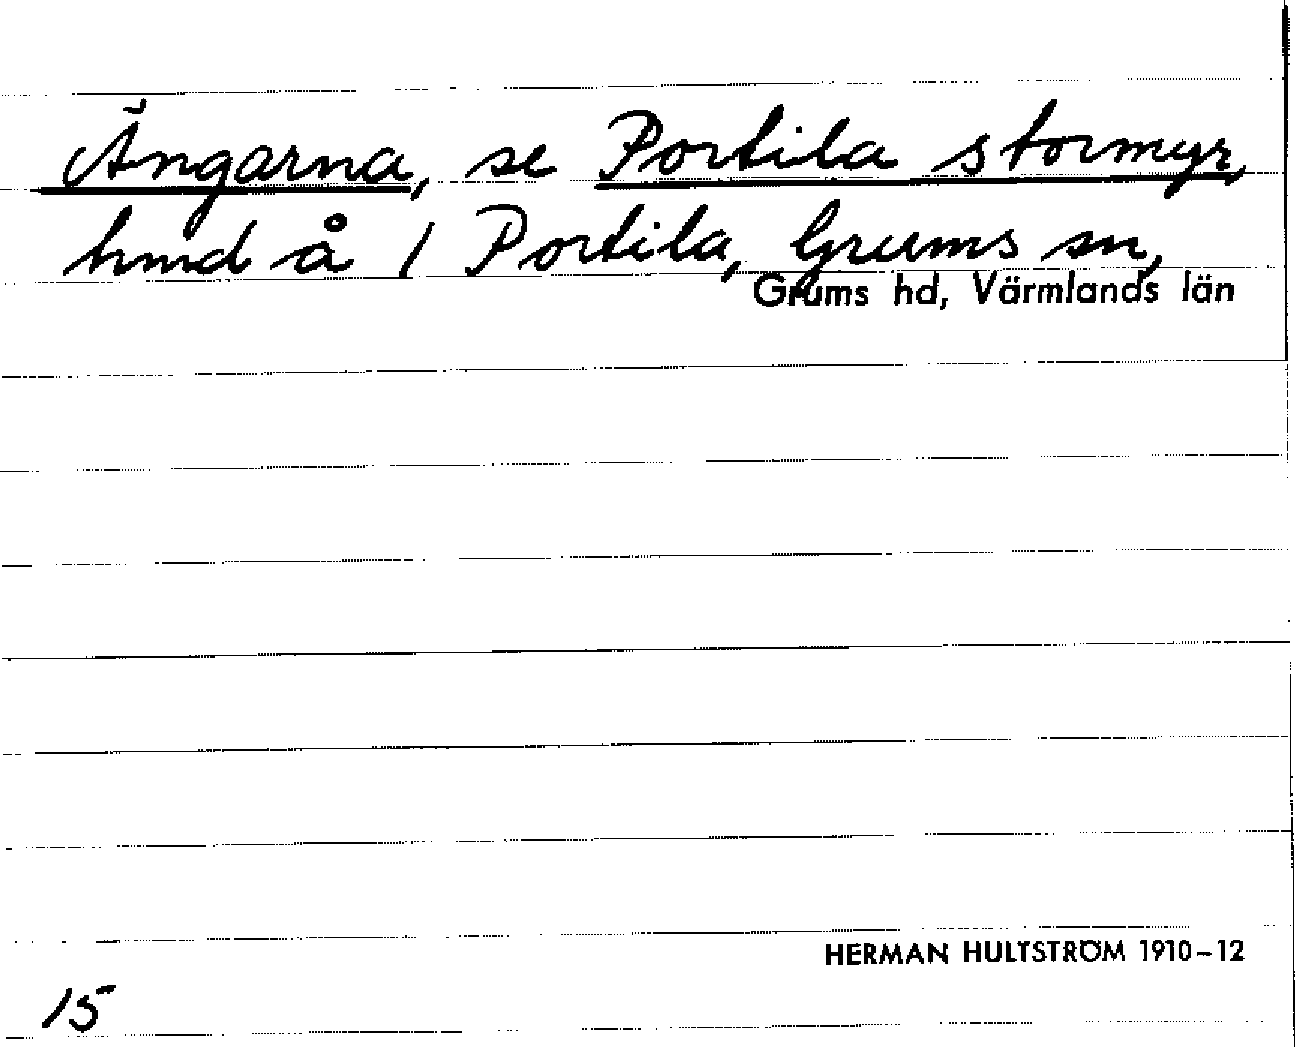 Ängarna, se Portila stormyr,
hmd å 1 Portila, Grums sn,
Grums hd, Värmlands län
HERMAN HULTSTRÖM 1910-12
15